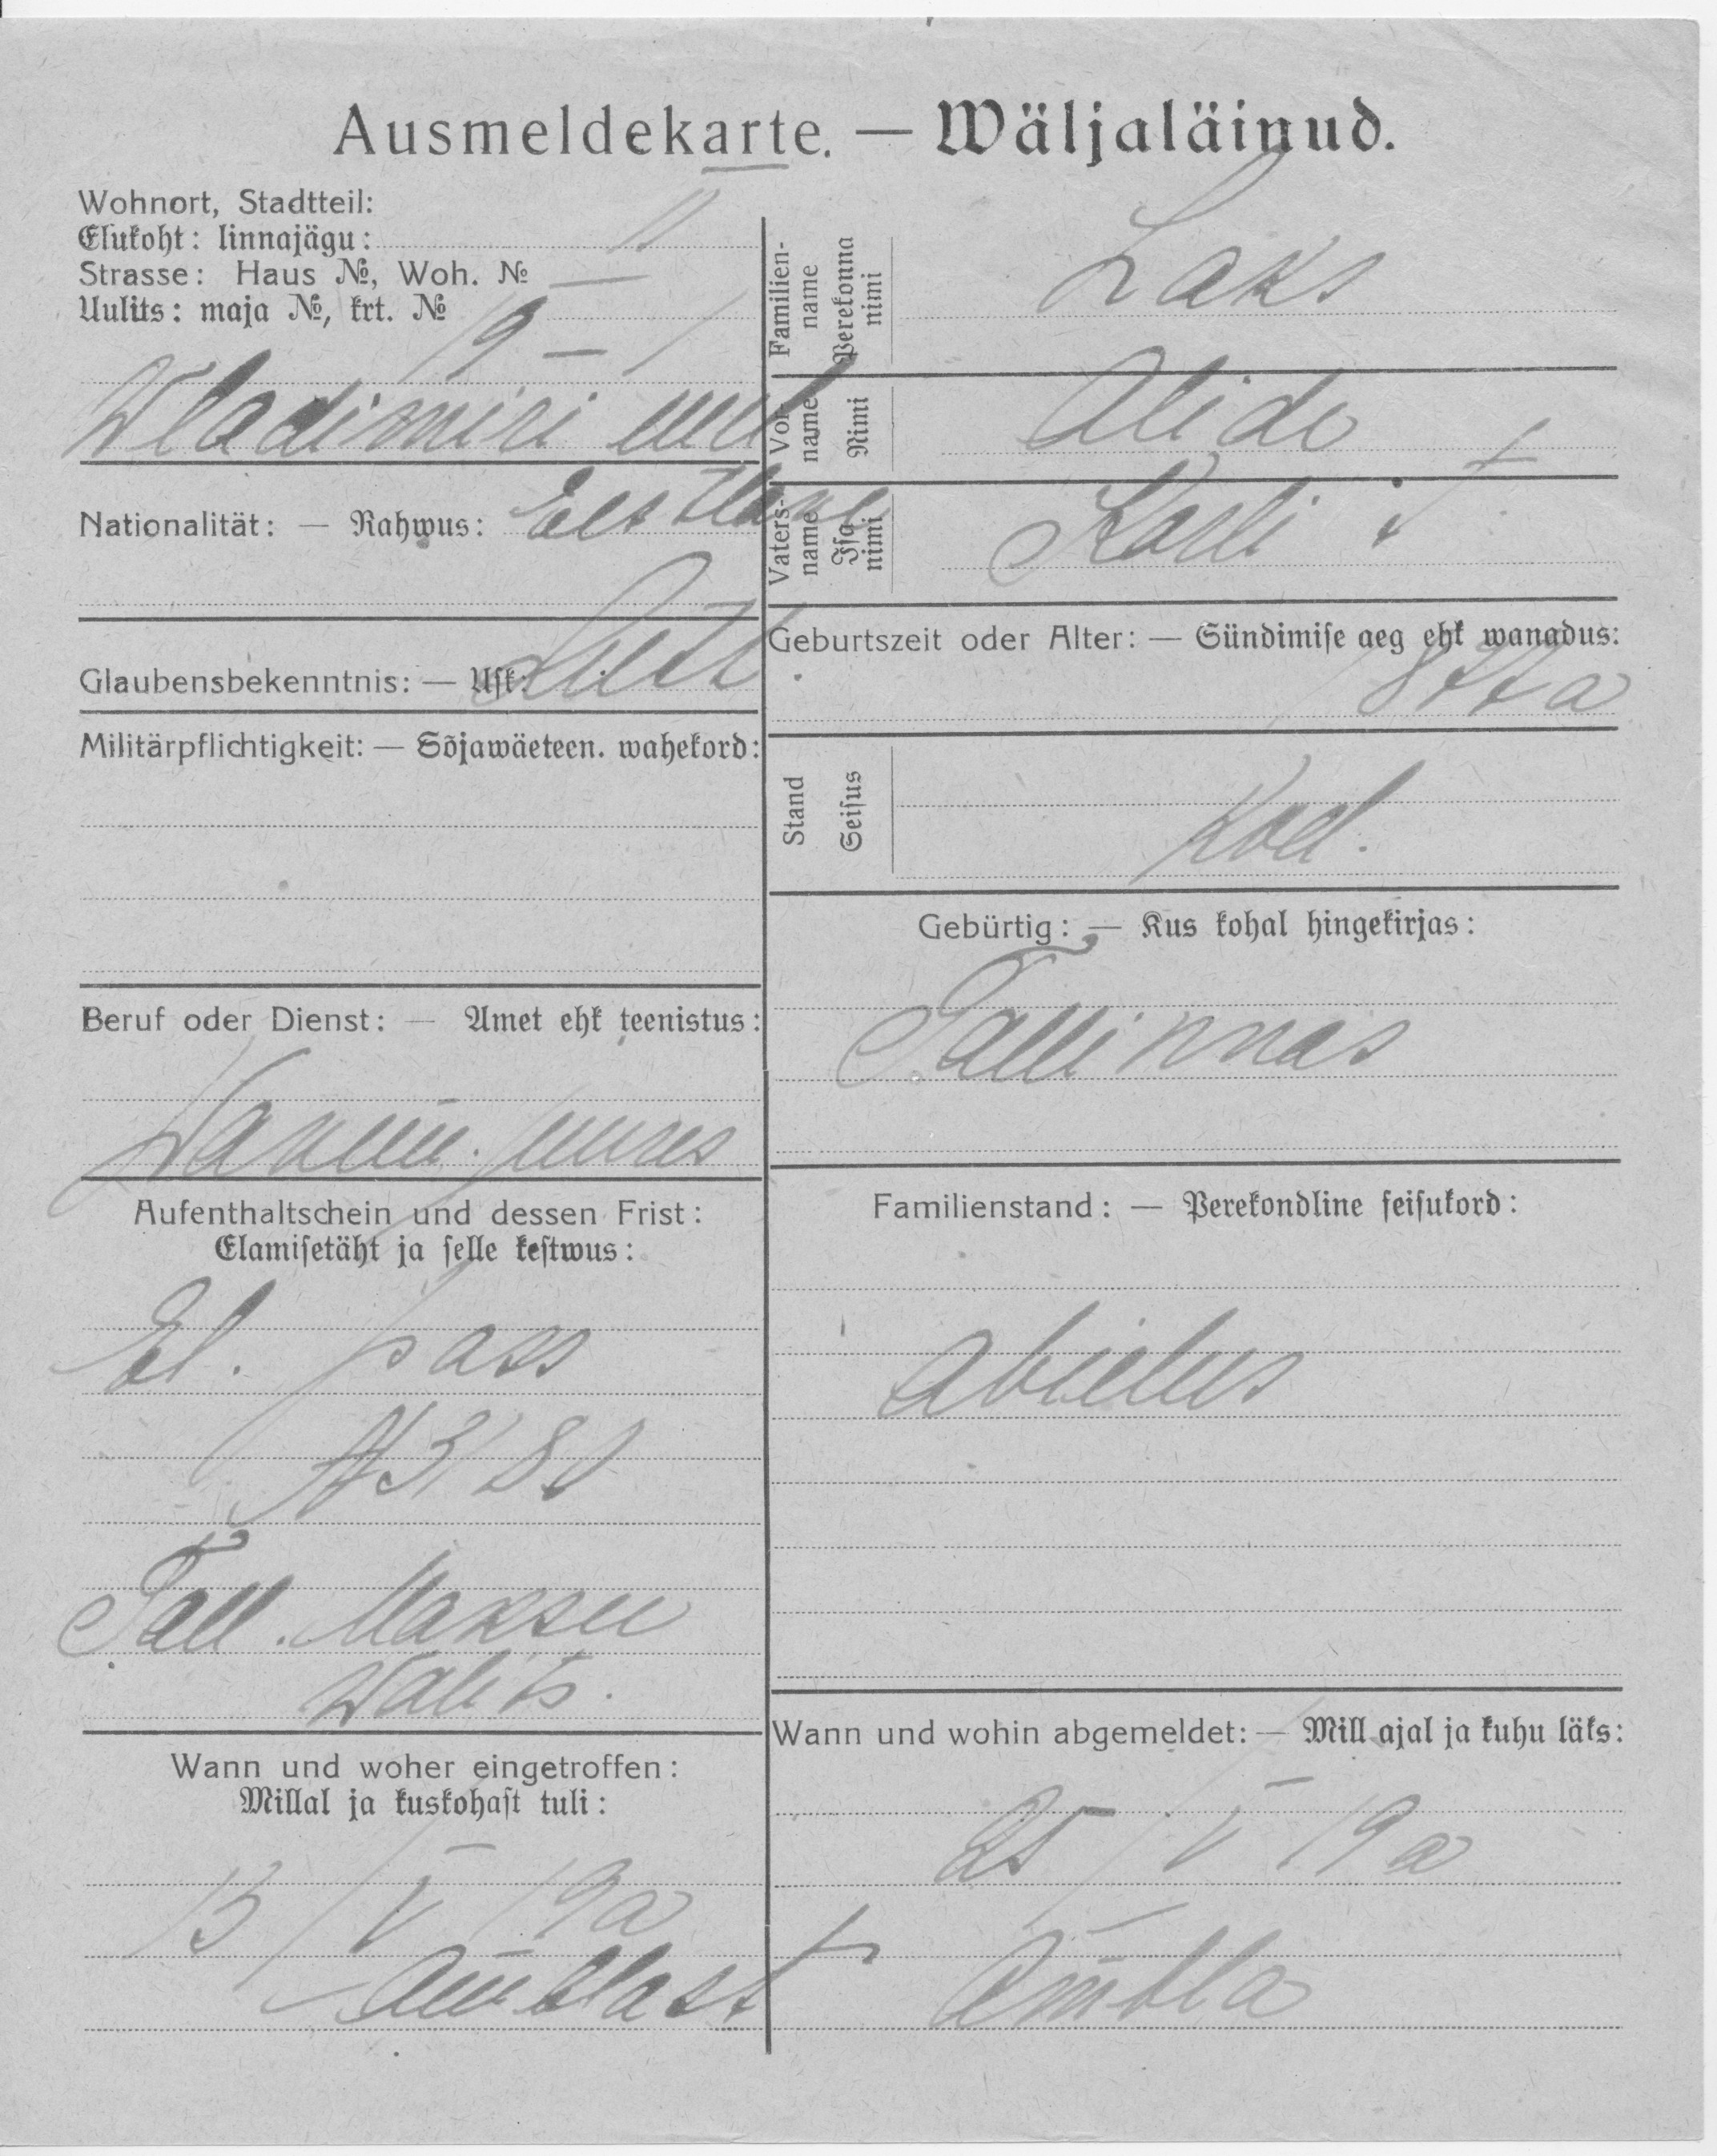 Ausmeldekarte. — Wäljaläinud.
Wohnort, Stadtteil:
Elukoht: linnajägu: II
Strasse: Haus №, Woh. №
Uulits: maja №, krt. №
19 – 1
Wladimiri uul
Nationalität: — Rahwus: Eestlane
Glaubensbekenntnis: — Usk: Luth.
Militärpflichtigkeit: — Sõjawäeteen. wahekord:
Beruf oder Dienst: — Amet ehk teenistus:
juures
Aufenthaltschein und dessen Frist:
Elamisetäht ja selle kestwus:
El. pass
Tall. Maksu
Walits.
Wann und woher eingetroffen:
Millal ja kuskohast tuli:
13/V 19 a
Amblast
Familien-
name
Perekonna
nimi
Laks
Vor-
name
Nimi
Alide
Vaters-
name
Isa
nimi
Karli t.
Geburtszeit oder Alter: — Sündimise aeg ehk wanadus:
1877 a
Stand
Seisus
Kod.
Gebürtig: — Kus kohal hingekirjas:
Tallinnas
Familienstand: — Perekondline seisukord:
abielus
Wann und wohin abgemeldet: — Mill ajal ja kuhu läks:
25/V 19 a
Ambla